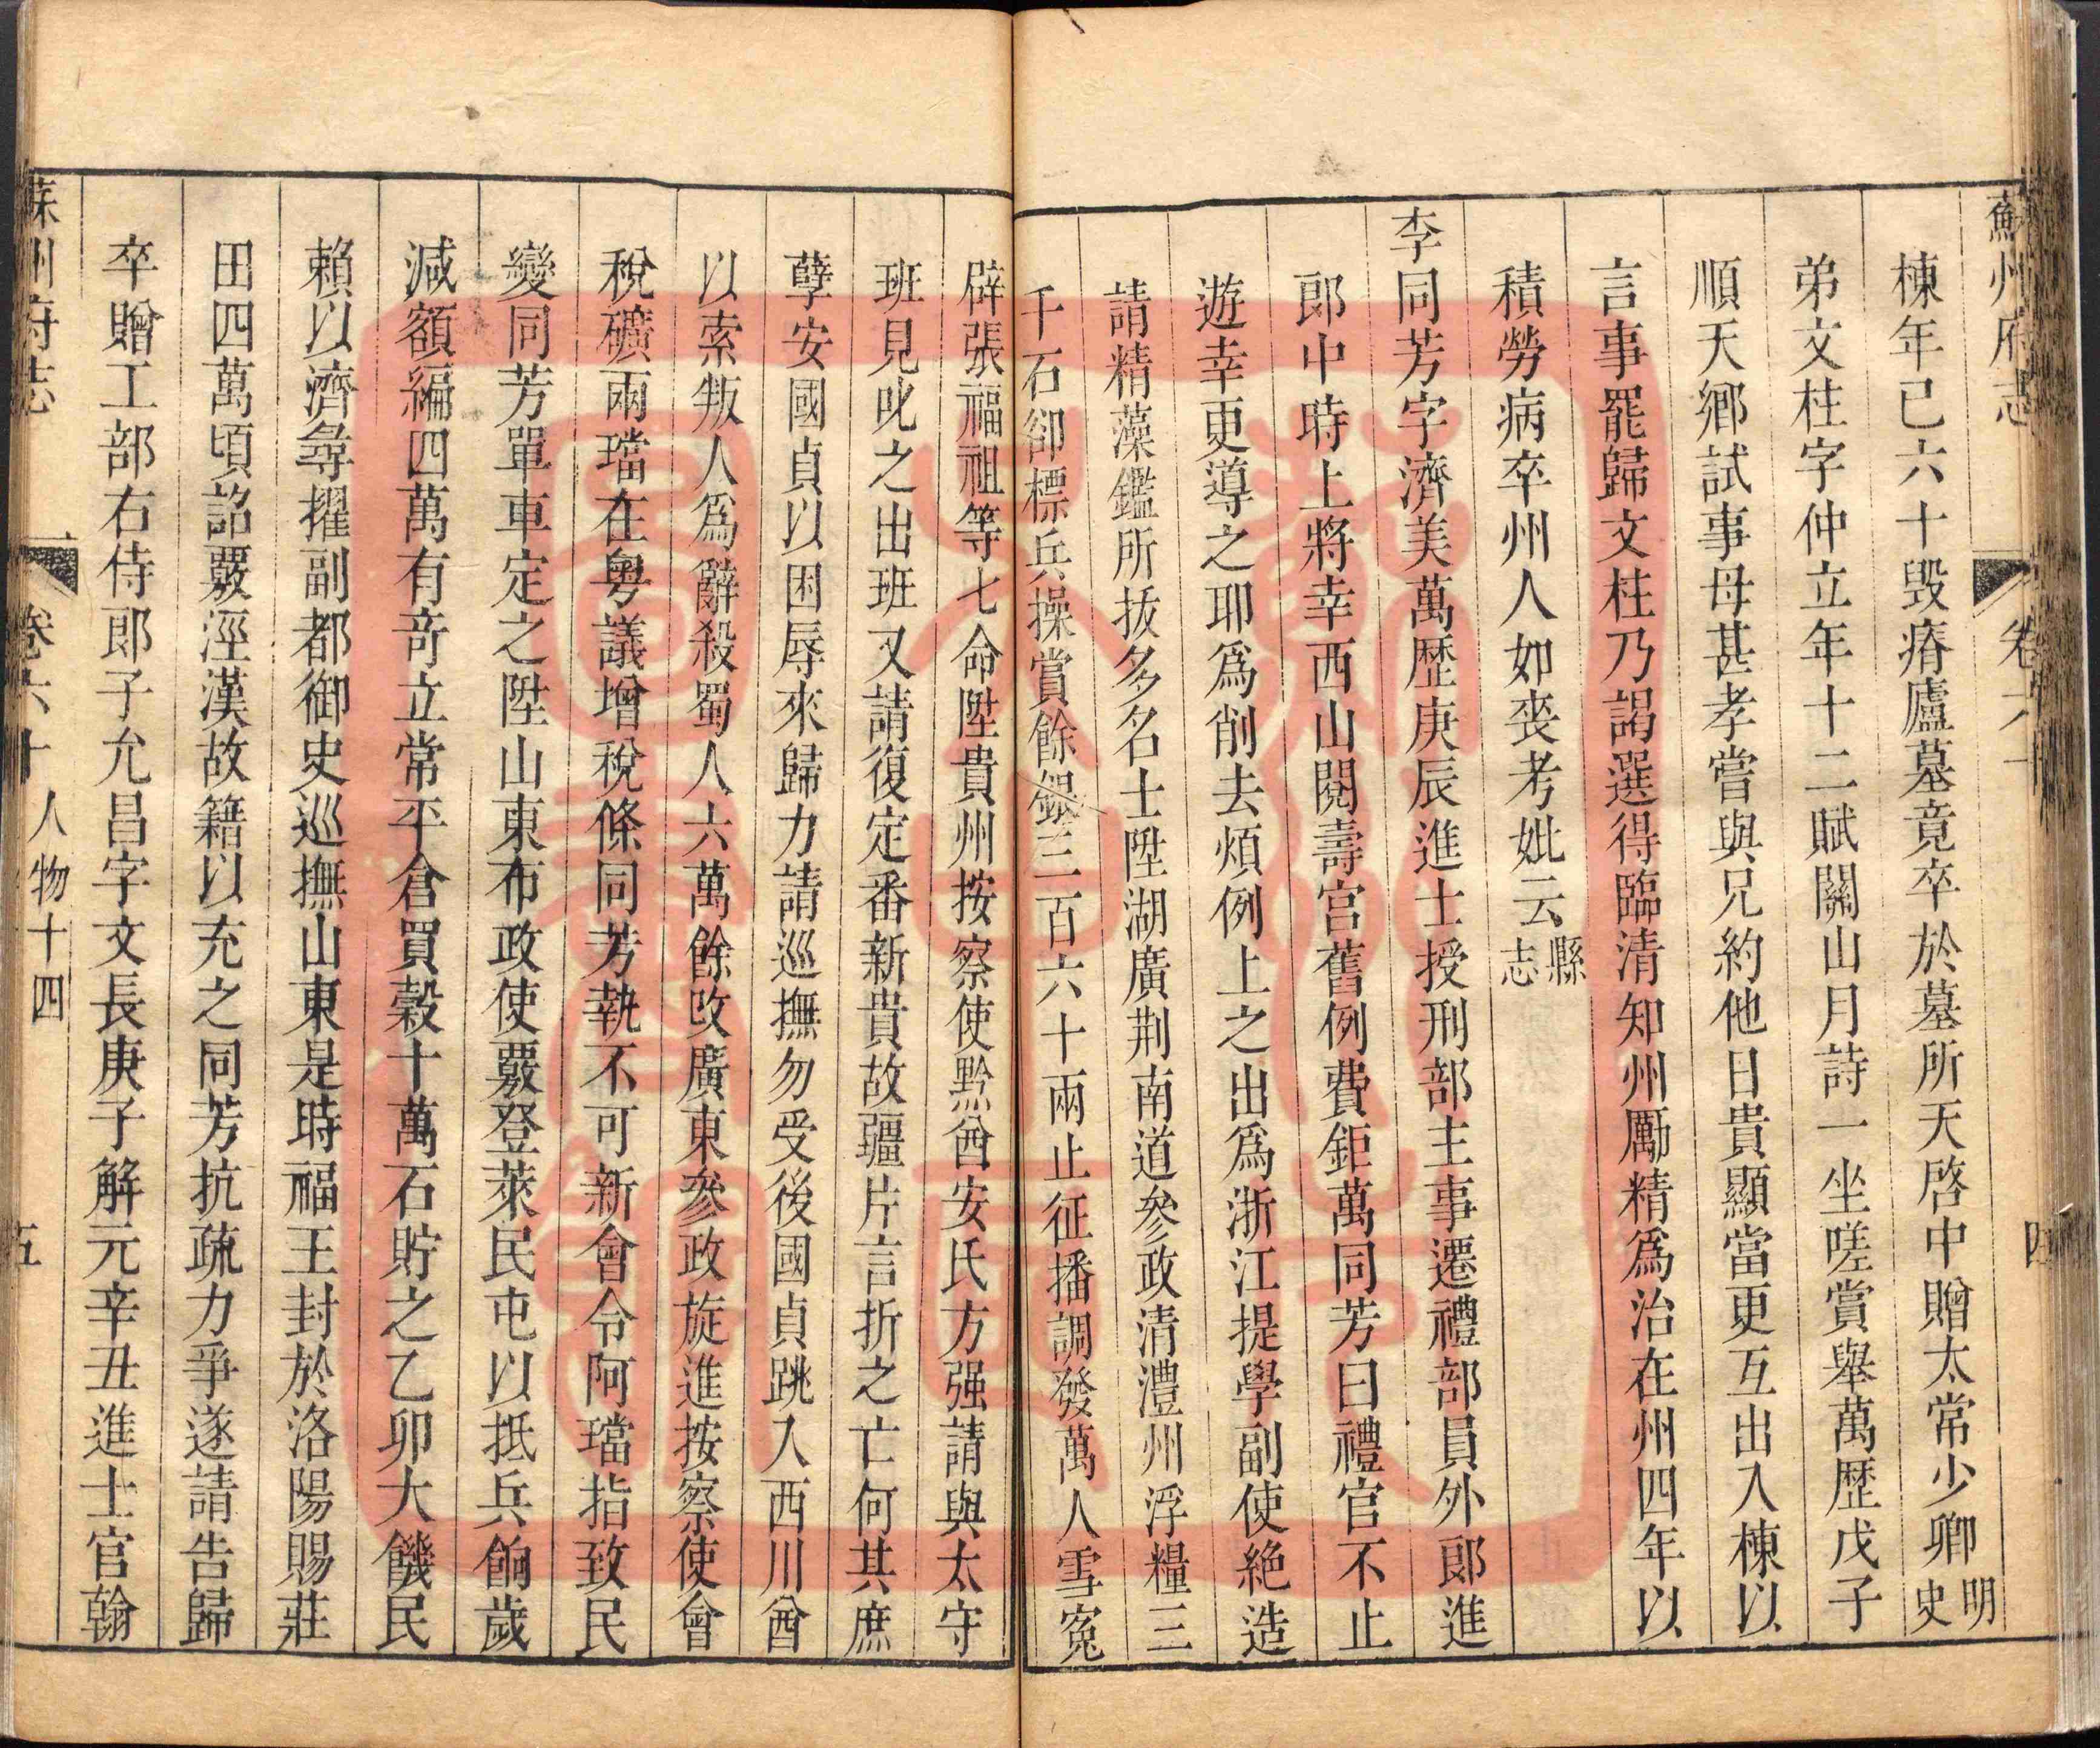 蘇州府志 卷六十 四
棟年已六十毀瘠廬墓竟卒於墓所天啓中贈太常少卿明史
弟文柱字仲立年十二賦關山月詩一坐嗟賞舉萬歷戊子
順天鄉試事母甚孝嘗與兄約他日貴顯當更互出入棟以
言事罷歸文柱乃謁選得臨清知州勵精爲治在州四年以
積勞病卒州人如喪考妣云縣志
李同芳字濟美萬歷庚辰進士授刑部主事遷禮部員外郞進
郞中時上將幸西山閱壽宮舊例費鉅萬同芳曰禮官不止
遊幸更導之耶爲削去煩例上之出爲浙江提學副使絶造
請精藻鑑所拔多名士陞湖廣荆南道參政清澧州浮糧三
千石卻標兵操賞餘銀三百六十兩止征播調發萬人雪寃
辟張福祖等七命陞貴州按察使黔酋安氏方强請與太守
班見叱之出班又請復定番新貴故疆片言折之亡何其庶
孽安國貞以困辱來歸力請巡撫勿受後國貞跳入西川酋
以索叛人爲辭殺蜀人六萬餘改廣東參政旋進按察使會
稅礦兩璫在粵議增稅條同芳執不可新會令阿璫指致民
變同芳單車定之陞山東布政使覈登萊民屯以抵兵餉歲
減額編四萬有奇立常平倉買穀十萬石貯之乙卯大饑民
賴以濟尋擢副都御史巡撫山東是時福王封於洛陽賜莊
田四萬頃詔覈涇漢故籍以充之同芳抗疏力爭遂請告歸
卒贈工部右侍郞子允昌字文長庚子解元辛丑進士官翰
蘇州府志 卷六十 人物十四 五